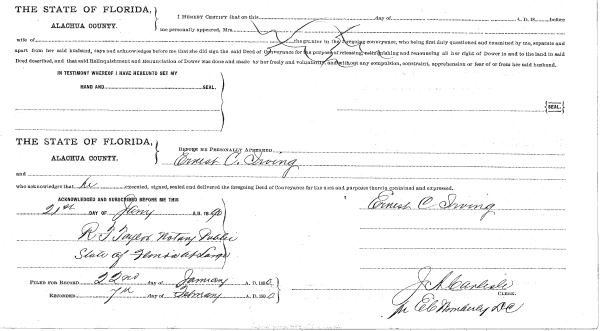 THE STATE OF FLORIDA,
ALACHUA COUNTY.
I HEREBY CERTIFY that on this day of A. D. 18 before
me personally appeared, Mrs.
wife of the grantor in the foregoing conveyance, who being first duly questioned and examined by me, separate and
apart from her said husband, says and acknowledges before me that she did sign the said Deed of Conveyance for the purpose of releasing, relinquishing and renouncing all her right of Dower in and to the land in said
Deed described, and that said Relinquishment and Renunciation of Dower was done and made by her freely and voluntarily, and without any compulsion, constraint, apprehension or fear of or from her said husband.
IN TESTIMONY WHEREOF I HAVE HEREUNTO SET MY
HAND AND SEAL.
SEAL.
THE STATE OF FLORIDA,
ALACHUA COUNTY.
BEFORE ME PERSONALLY APPEARED
Ernest C. Irving
and
who acknowledges that he executed, signed, sealed and delivered the foregoing Deed of Conveyance for the uses and purposes therein contained and expressed.
ACKNOWLEDGED AND SUBSCRIBED BEFORE ME THIS
21st DAY OF A.D. 1890
Ernest C Irving
R. F. Taylor Notary Public
State of Florida at Large
FILED FOR RECORD 22nd day of January A. D. 1890.
RECORDED 7th day of February A. D. 1890.
J A Carlisle
CLERK.
per E C DC